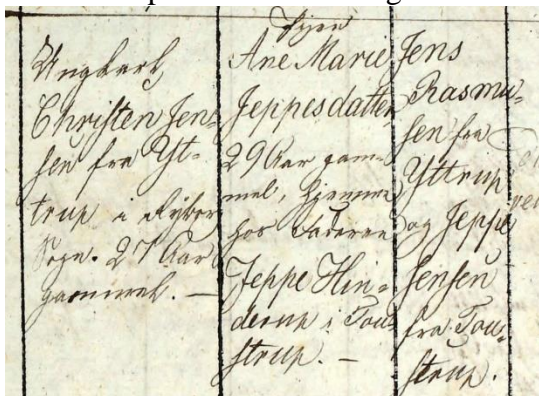 Ungkarl
Christen Jen-
sen fra Yt-
trup i Ryber
Sogn. 27 Aar
gammel. —
Pigen
Ane Marie
Jeppesdatter
29 Aar gam-
mel, hjemme
hos Faderen
Jeppe Hin-
derup i Tou-
strup. —
Jens
Rasmu-
sen fra
Yttrup
og Jeppe
Jensen
fra Tou-
strup.